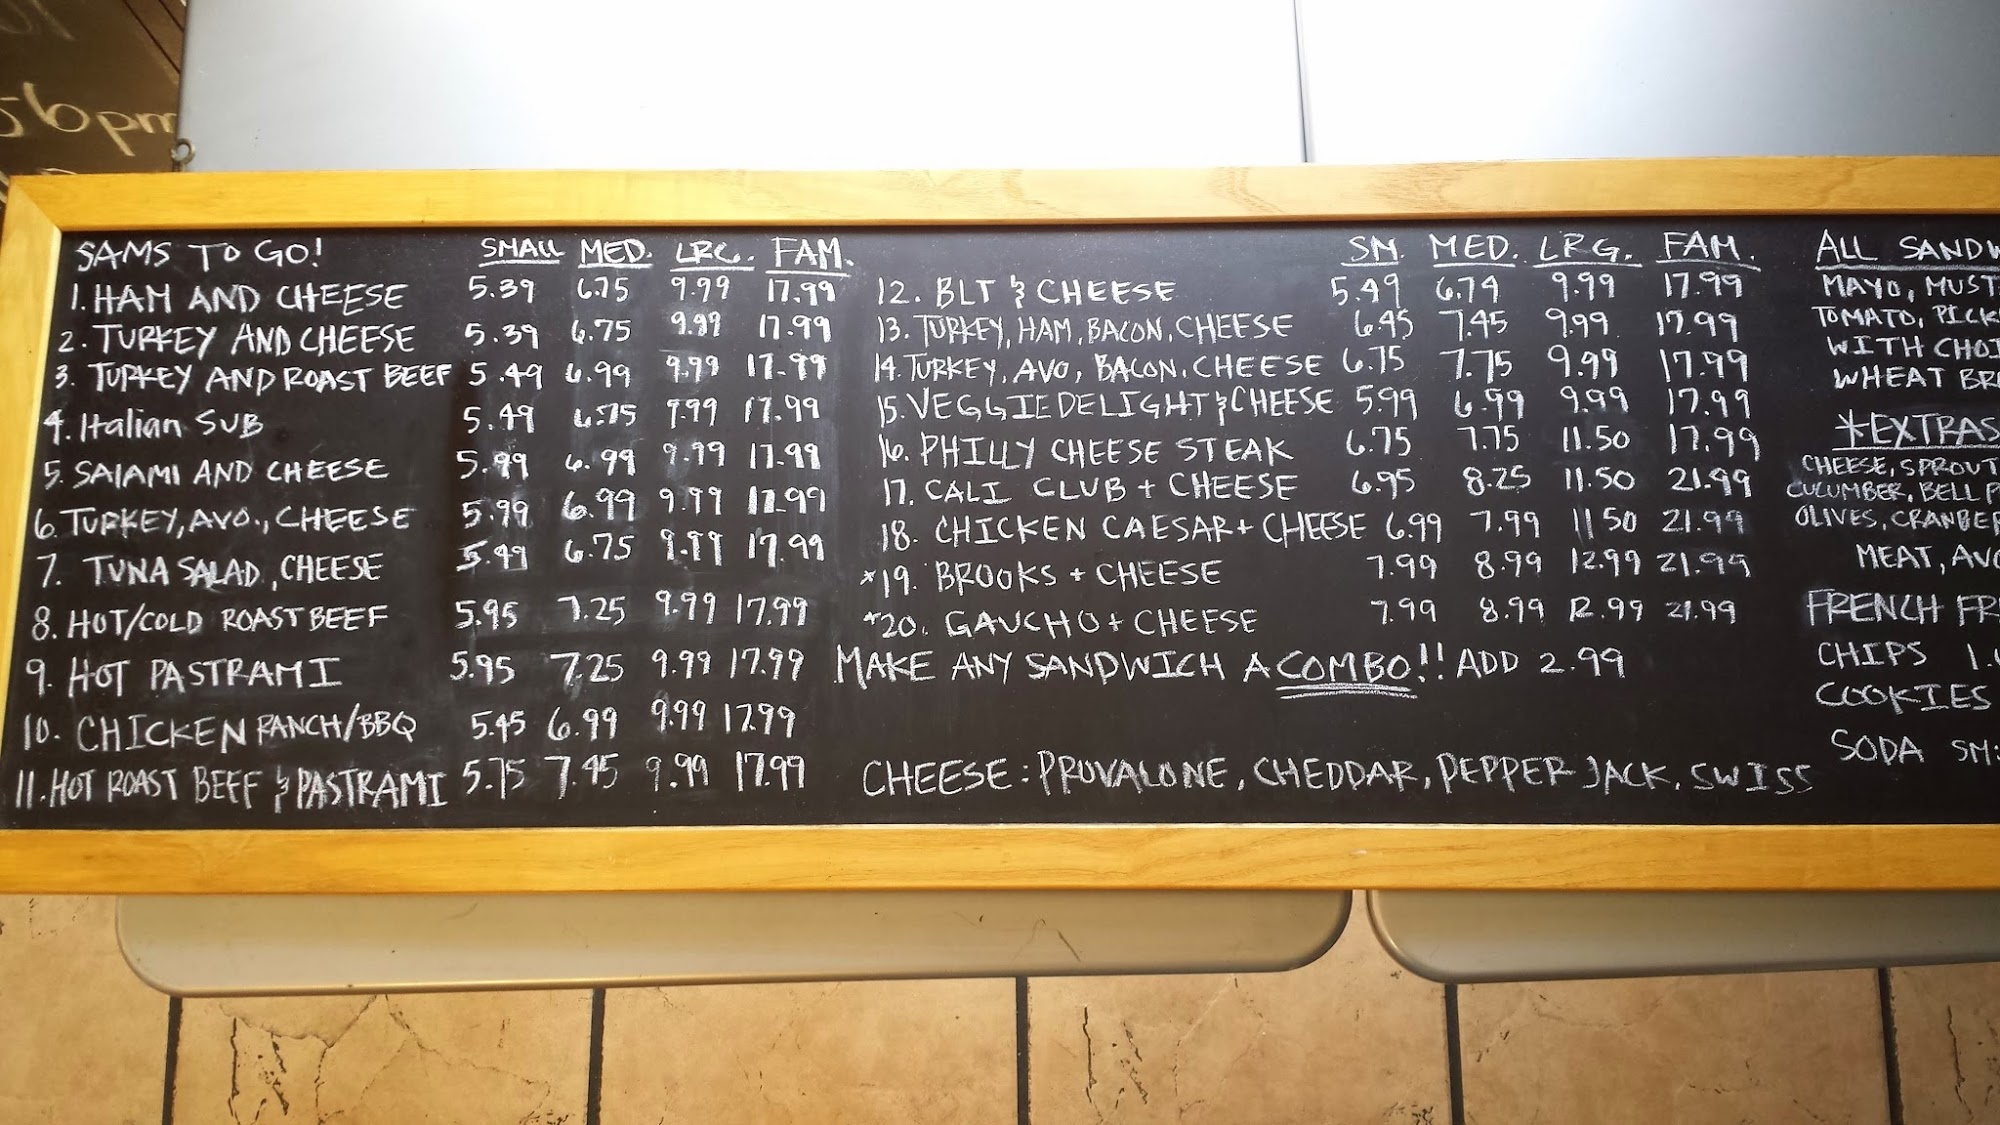 6pm
SAMS TO GO! SMALL MED. LRG. FAM.
1. HAM AND CHEESE 5.39 6.75 9.99 17.99
2. TURKEY AND CHEESE 5.39 6.75 9.99 17.99
3. TURKEY AND ROAST BEEF 5.49 6.99 9.99 17.99
4. Italian SUB 5.49 6.75 9.99 17.99
5. SALAMI AND CHEESE 5.99 6.99 9.99 17.99
6. TURKEY, AVO., CHEESE 5.99 6.99 9.99 17.99
7. TUNA SALAD, CHEESE 5.49 6.75 9.99 17.99
8. HOT/COLD ROAST BEEF 5.95 7.25 9.99 17.99
9. HOT PASTRAMI 5.95 7.25 9.99 17.99
10. CHICKEN RANCH/BBQ 5.45 6.99 9.99 17.99
11. HOT ROAST BEEF & PASTRAMI 5.75 7.45 9.99 17.99
SM. MED. LRG. FAM.
12. BLT & CHEESE 5.49 6.74 9.99 17.99
13. TURKEY, HAM, BACON, CHEESE 6.45 7.45 9.99 17.99
14. TURKEY, AVO, BACON, CHEESE 6.75 7.75 9.99 17.99
15. VEGGIE DELIGHT & CHEESE 5.99 6.99 9.99 17.99
16. PHILLY CHEESE STEAK 6.75 7.75 11.50 17.99
17. CALI CLUB + CHEESE 6.95 8.25 11.50 21.99
18. CHICKEN CAESAR + CHEESE 6.99 7.99 11.50 21.99
*19. BROOKS + CHEESE 7.99 8.99 12.99 21.99
*20. GAUCHO + CHEESE 7.99 8.99 12.99 21.99
MAKE ANY SANDWICH A COMBO!! ADD 2.99
CHEESE: PROVALONE, CHEDDAR, PEPPER JACK, SWISS
ALL SANDW
MAYO, MUST
TOMATO, PICK
WITH CHOI
WHEAT BRE
*EXTRAS
CHEESE, SPROUT
CUCUMBER, BELL P
OLIVES, CRANBER
MEAT, AVO
FRENCH FR
CHIPS 1.
COOKIES
SODA SM: